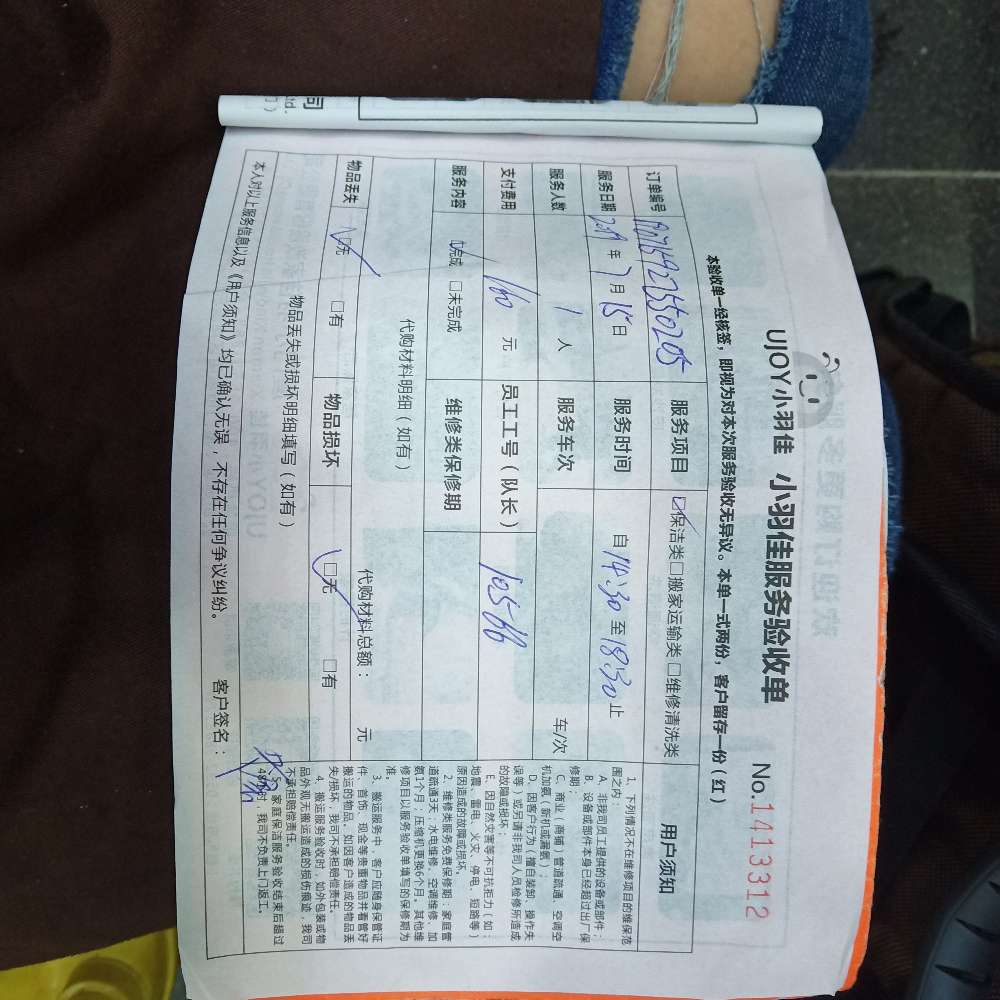 UJOY小羽佳 小羽佳服务验收单
No.1413312
本验收单一经核签，即视为对本次服务验收无异议。本单一式两份，客户留存一份（红）
订单编号
服务项目 保洁类 □搬家运输类 □维修清洗类
服务日期 2019年7月15日 服务时间 自14:30至18:30止
服务人数 1人 服务车次 车/次
支付费用 160元 员工工号（队长） 10566
服务内容 完成 □未完成 维修类保修期
代购材料明细（如有） 代购材料总额： 元
物品丢失 □无 □有 物品损坏 □无 □有
物品丢失或损坏明细填写（如有）
本人对以上服务信息以及《用户须知》均已确认无误，不存在任何争议纠纷。 客户签名：
用户须知
1、下列情况不在维修项目的维保范
围之内：
A、非我司员工提供的设备或部件；
B、设备或部件本身已经超过出厂保
修期；
C、商业（商铺）管道疏通、空调空
机加氨（新机或漏氨）；
D、因客户行为（擅自装卸、操作失
误等）或另请非我司人员检修所造成
的故障或损坏；
E、因自然灾害等不可抗拒力（如：
地震、雷电、火灾、停电、短路等）
原因造成的故障或损坏。
2、维修类服务免费保修期：家庭管
道疏通3天；水电维修、空调维修、加
氨1个月；压缩机更换6个月。其他维
修项目以服务验收单填写的保修期为
准。
3、搬运服务中，客户应随身保管证
件、首饰、现金等贵重物品并看管好
搬运的物品，如因客户造成的物品丢
失/损坏，我司不承担赔偿责任。
4、搬运服务验收时，如外包装或物
品外观无搬运造成的损伤痕迹，我司
不承担赔偿责任。
5、家庭保洁服务验收结束后超过
时，我司不负责上门返工。